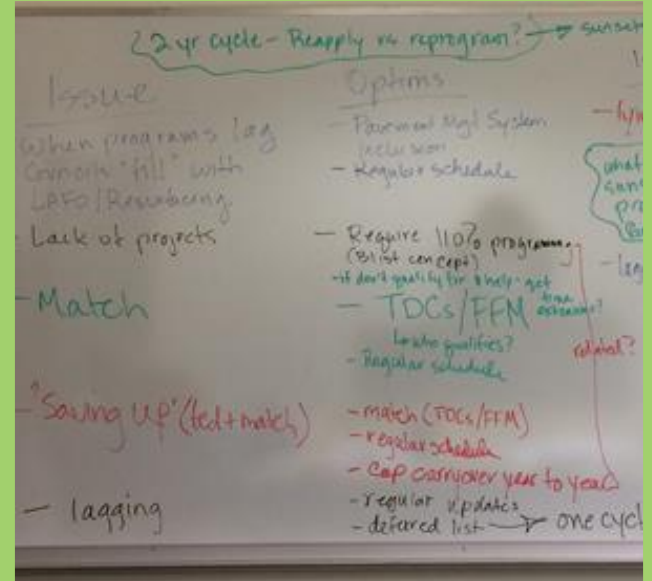 2 yr cycle - Reapply vs reprogram? → sunset
Issue
When programs lag
Councils "fill" with
LAFO/Resurfacing
- Lack of projects
- Match
- "Saving up" (fed + match)
- lagging
Options
- Pavement Mgt System
inclusion
- Regular schedule
- Require 110% program.
(B list concept)
- if don't qualify for $ help - get
time
extension?
- TDCs/FFM
↳ who qualifies?
- Regular schedule
- match (TDCs/FFM)
- regular schedule
- Cap carryover year to year
- regular updates
- deferred list → one cycl
related?
what
pro
- lag